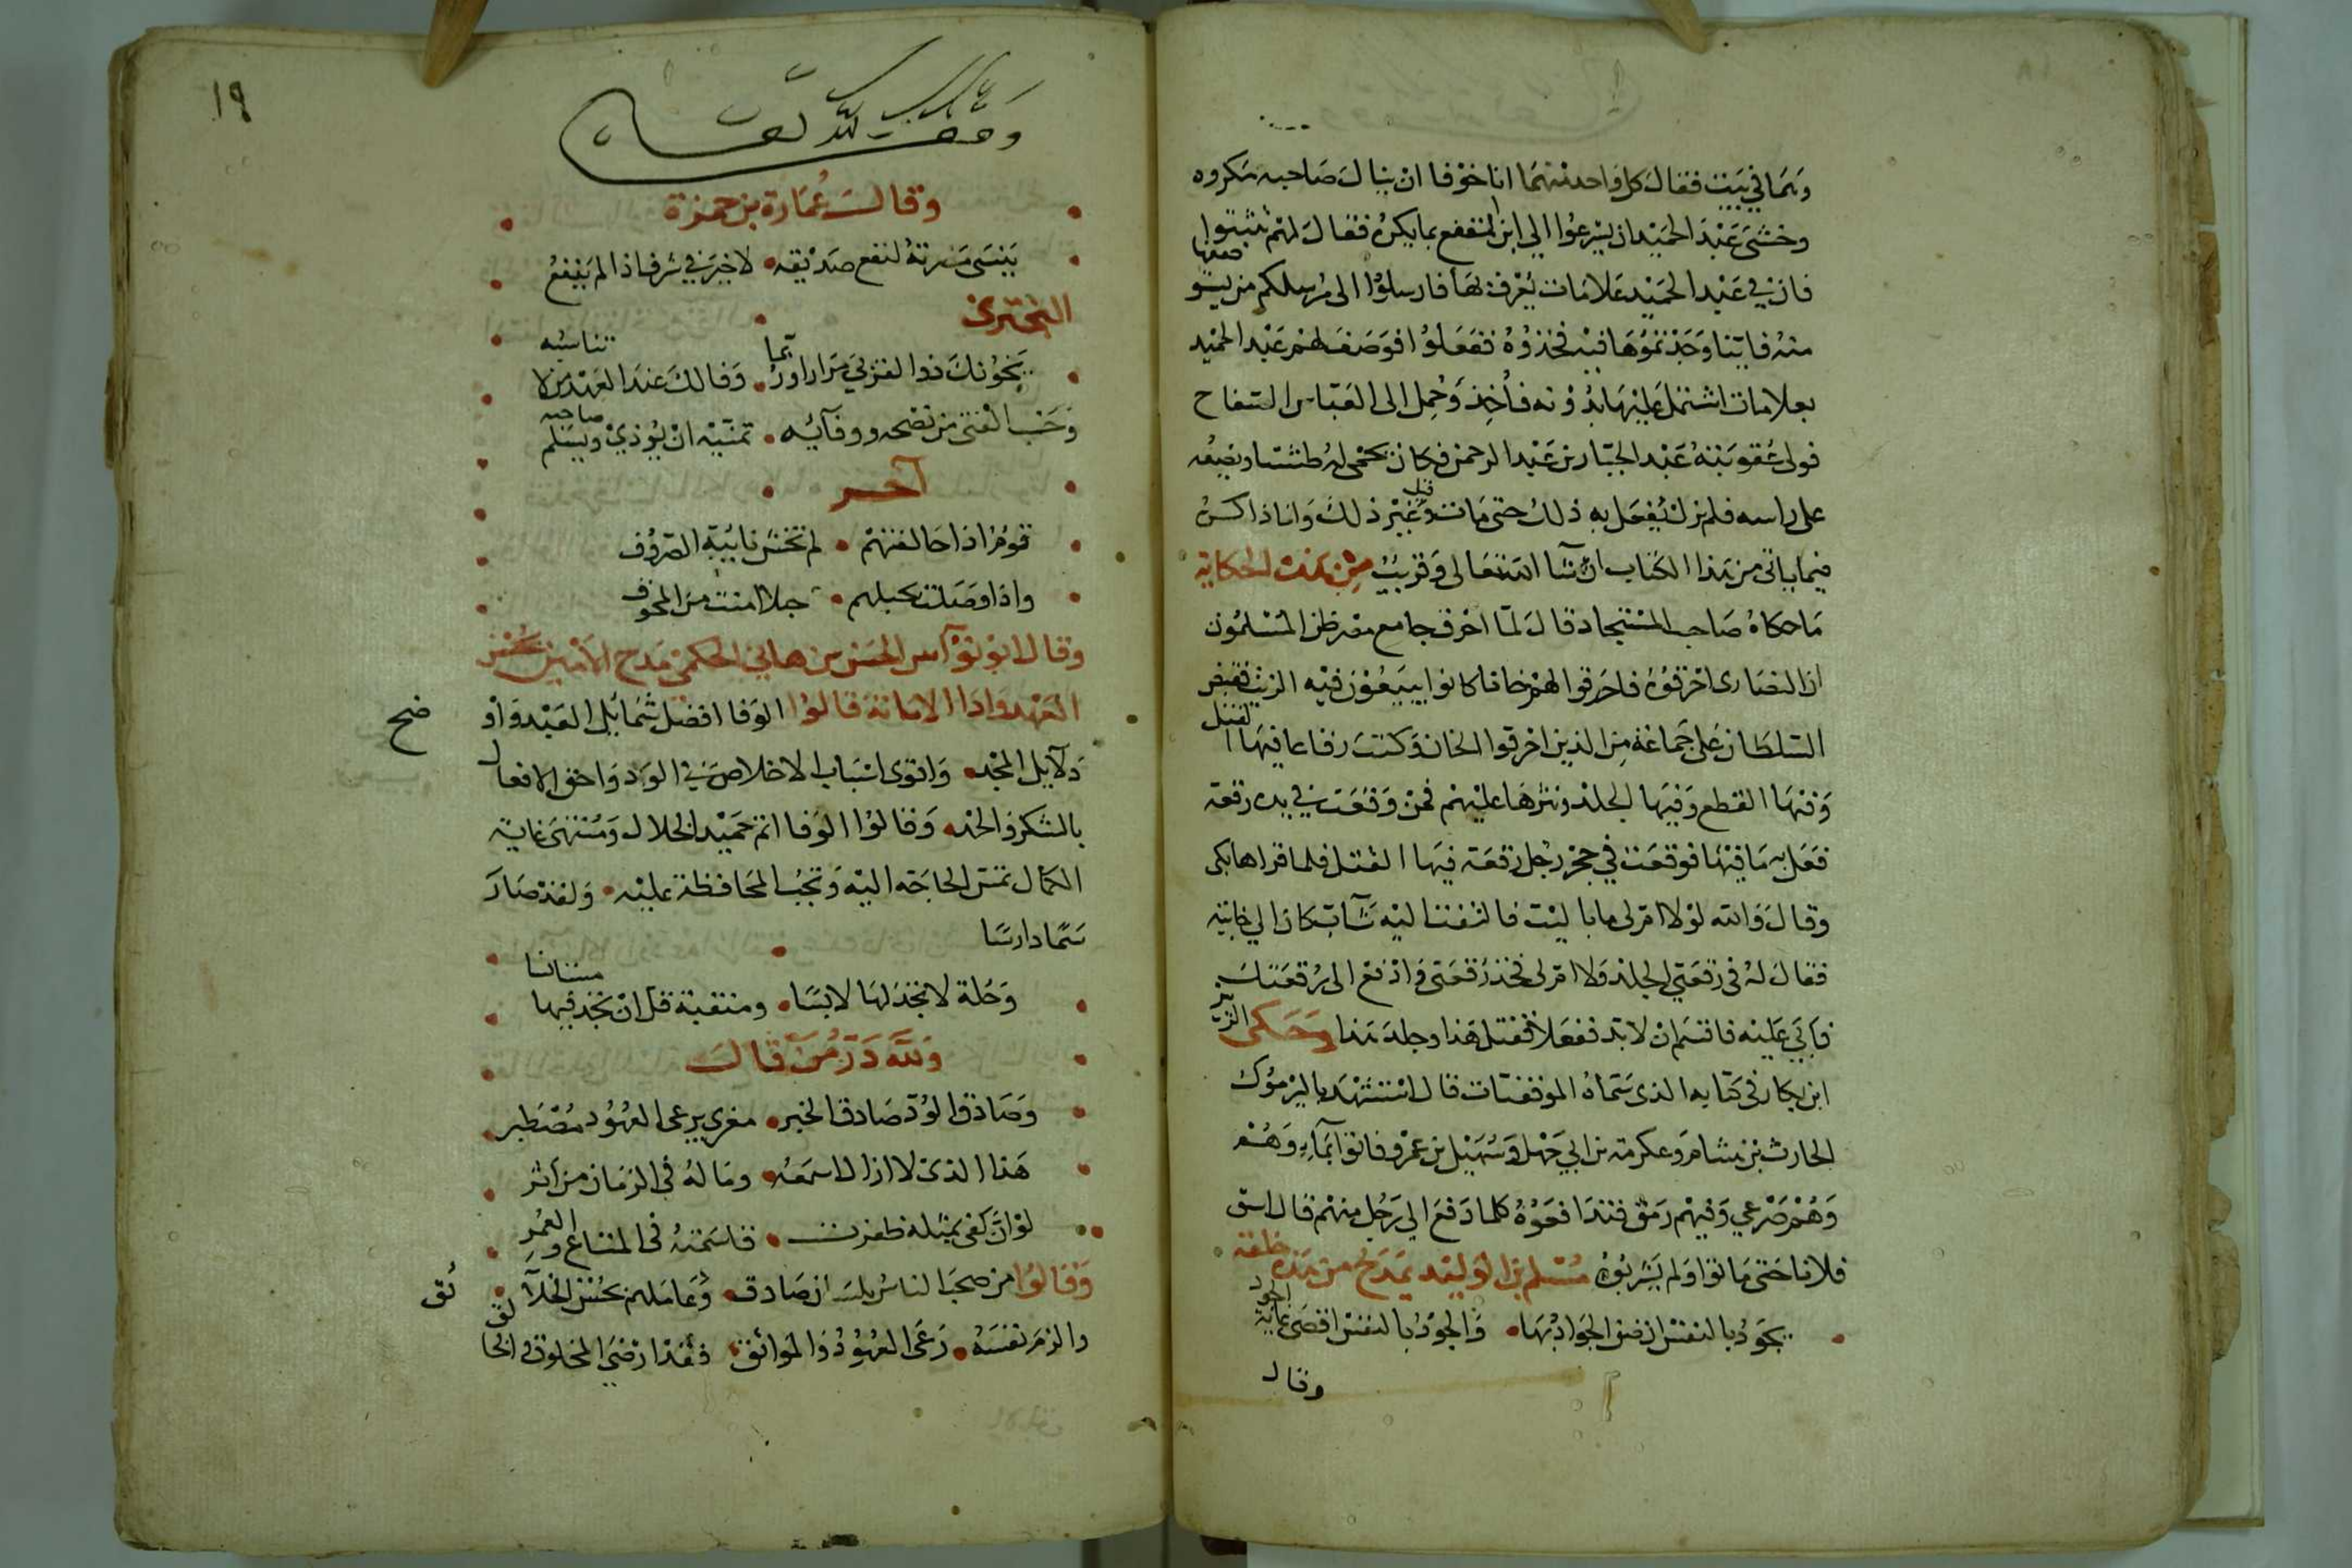 وهما في بيت فقال كل واحد منهما انا خوفا ان ينال صاحبه مكروه
وخشي عبد الحميد ان يسرعوا الى ابن المقفع بما يكره فقال لهم تثبتوا
فان في عبد الحميد علامات يعرف بها فارسلوا الى مرسلكم من يستوصفها
منه فايّنا وجدتموها فيه فخذوه ففعلوا فوصف لهم عبد الحميد
بعلامات اشتمل عليها بدونه فأُخِذ وحُمل الى العباس السفاح
فولى عقوبته عبد الجبار بن عبد الرحمن فكان يحمى له طشتا ويضعه
على راسه فلم يزل يُفعل به ذلك حتى مات وقيل غير ذلك وانا ذاكره
فيما ياتي من هذا الكتاب ان شا الله تعالى وقريب من هذه الحكاية
ما حكاه صاحب المستجاد قال لما احرق جامع مصر ظن المسلمون
ان النصارى احرقوه فاحرقوا لهم خانا كانوا يبيعون فيه الزيت فقبض
السلطان على جماعة من الذين احرقوا الخان وكتب رقاعا فيها القتل
وفيها القطع وفيها الجلد ونثرها عليهم فمن وقعت في يده رقعة
فعل به ما فيها فوقعت في حجر رجل رقعة فيها القتل فلما قراها بكى
وقال والله لولا ام لي ما باليت فالتفت اليه شاب كان الي جانبه
فقال له في رقعتي الجلد ولا ام لي فخذ رقعتي وادفع الى رقعتك
فأبي عليه فاقسم ان لا بد ففعلا فقتل هذا وجلد هذا وحكى الزبير
ابن بكار في كتابه الذي سماه الموفقيات قال استشهد باليرموك
الحارث بن هشام وعكرمة بن ابي جهل وسهيل بن عمرو فاتوا بماء وهم
وهم صرعي وفيهم رمق فتدافعوه كلما دفع الى رجل منهم قال اسق
فلانا حتى ماتوا ولم يشربوه مسلم بن الوليد يمدح من هذه خلقه
يجود بالنفس ان ضن الجواد بها والجود بالنفس اقصى غاية الجود
وقال
١٩
وقف لله تعالى
وقالت عمارة بن حمزة
ينسى مضرته لنفع صديقه لا خير في شرف اذا لم ينفع
البحتري
يخونك ذوا القربى مرارا وربما وفا لك عند العهد من لا تناسبه
وحسب الفتى من نصحه ووفائه تمنيه ان يوذي ويسلم صاحبه
آخر
قوم اذا حالفتهم لم تخش نائبة الصروف
واذا وصلت بحبلهم حبلا امنت من المخوف
وقال ابو نواس الحسن بن هاني الحكمي مدح الامين بحفظ
العهد واداا الامانة قالوا الوفا افضل شمائل العبد واوضح
دلايل المجد واقوى اسباب الاخلاص في الود واحق الافعال
بالشكر والحمد وقالوا الوفا اتم حميد الخلال ومنتهى غاية
الكمال تمس الحاجة اليه وتجب المحافظة عليه ولقد صار
رسما دارسا
وحلة لا تجد لها لابسا ومنقبة قل ان تجد فيها منافسا
ولله در من قال
وصادق الود صادق الخبر مغري برعي العهود مصطبر
هذا الذي لا ازال اسمعه وما له في الزمان من اثر
لو ان كفى بمثله ظفرت قاسمته في المتاع والعمر
وقالوا من صحب الناس بلسان صادق وعاملهم بحسن الخلائق
والزم نفسه رعى العهود والمواثق فقد ارضى المخلوق والخالق